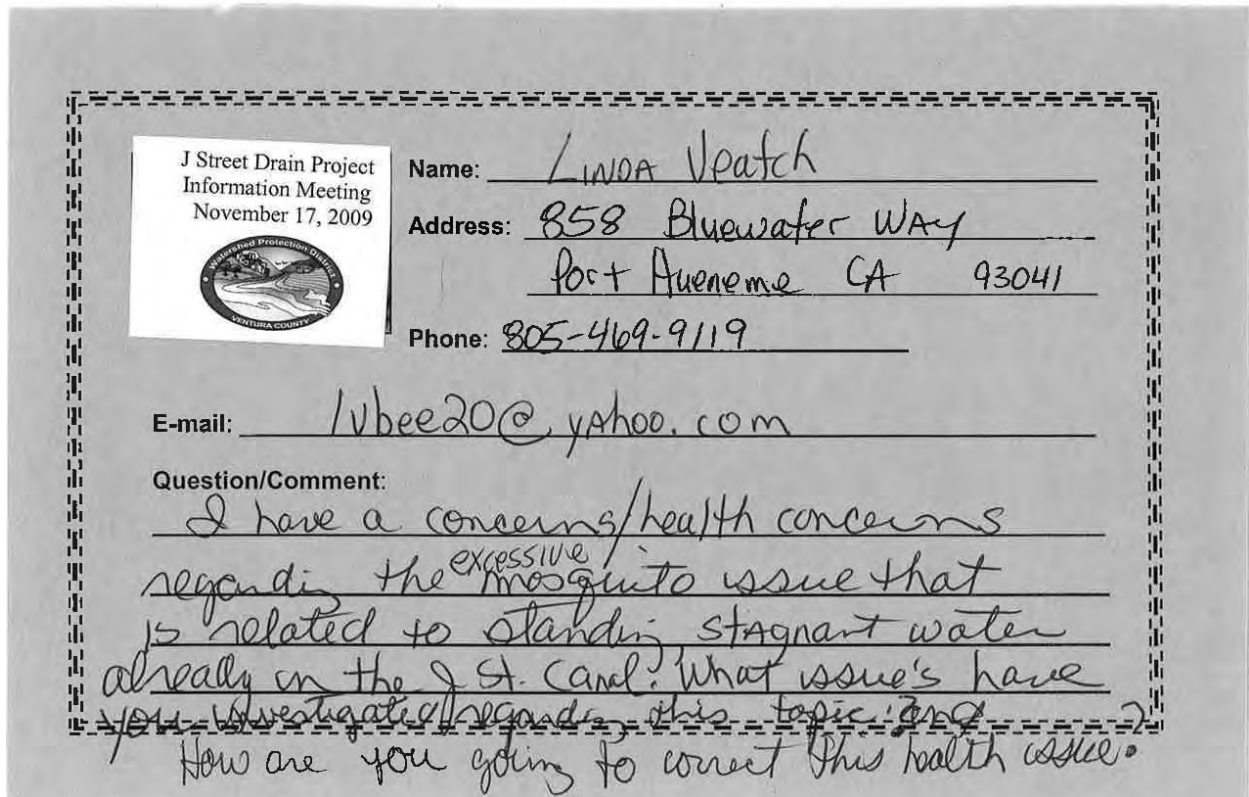 J Street Drain Project
Information Meeting
November 17, 2009
Watershed Protection District
VENTURA COUNTY
Name: LINDA Veatch
Address: 858 Bluewater WAY
Port Hueneme CA 93041
Phone: 805-469-9119
E-mail: lvbee20@yahoo.com
Question/Comment:
I have a concerns/health concerns
regarding the excessive mosquito issue that
is related to standing stagnant water
already in the J St. Canal. What issue's have
you investigated regarding this topic and
How are you going to correct this health issue?